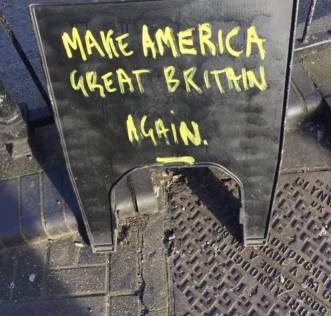 MAKE AMERICA
GREAT BRITAIN
AGAIN.